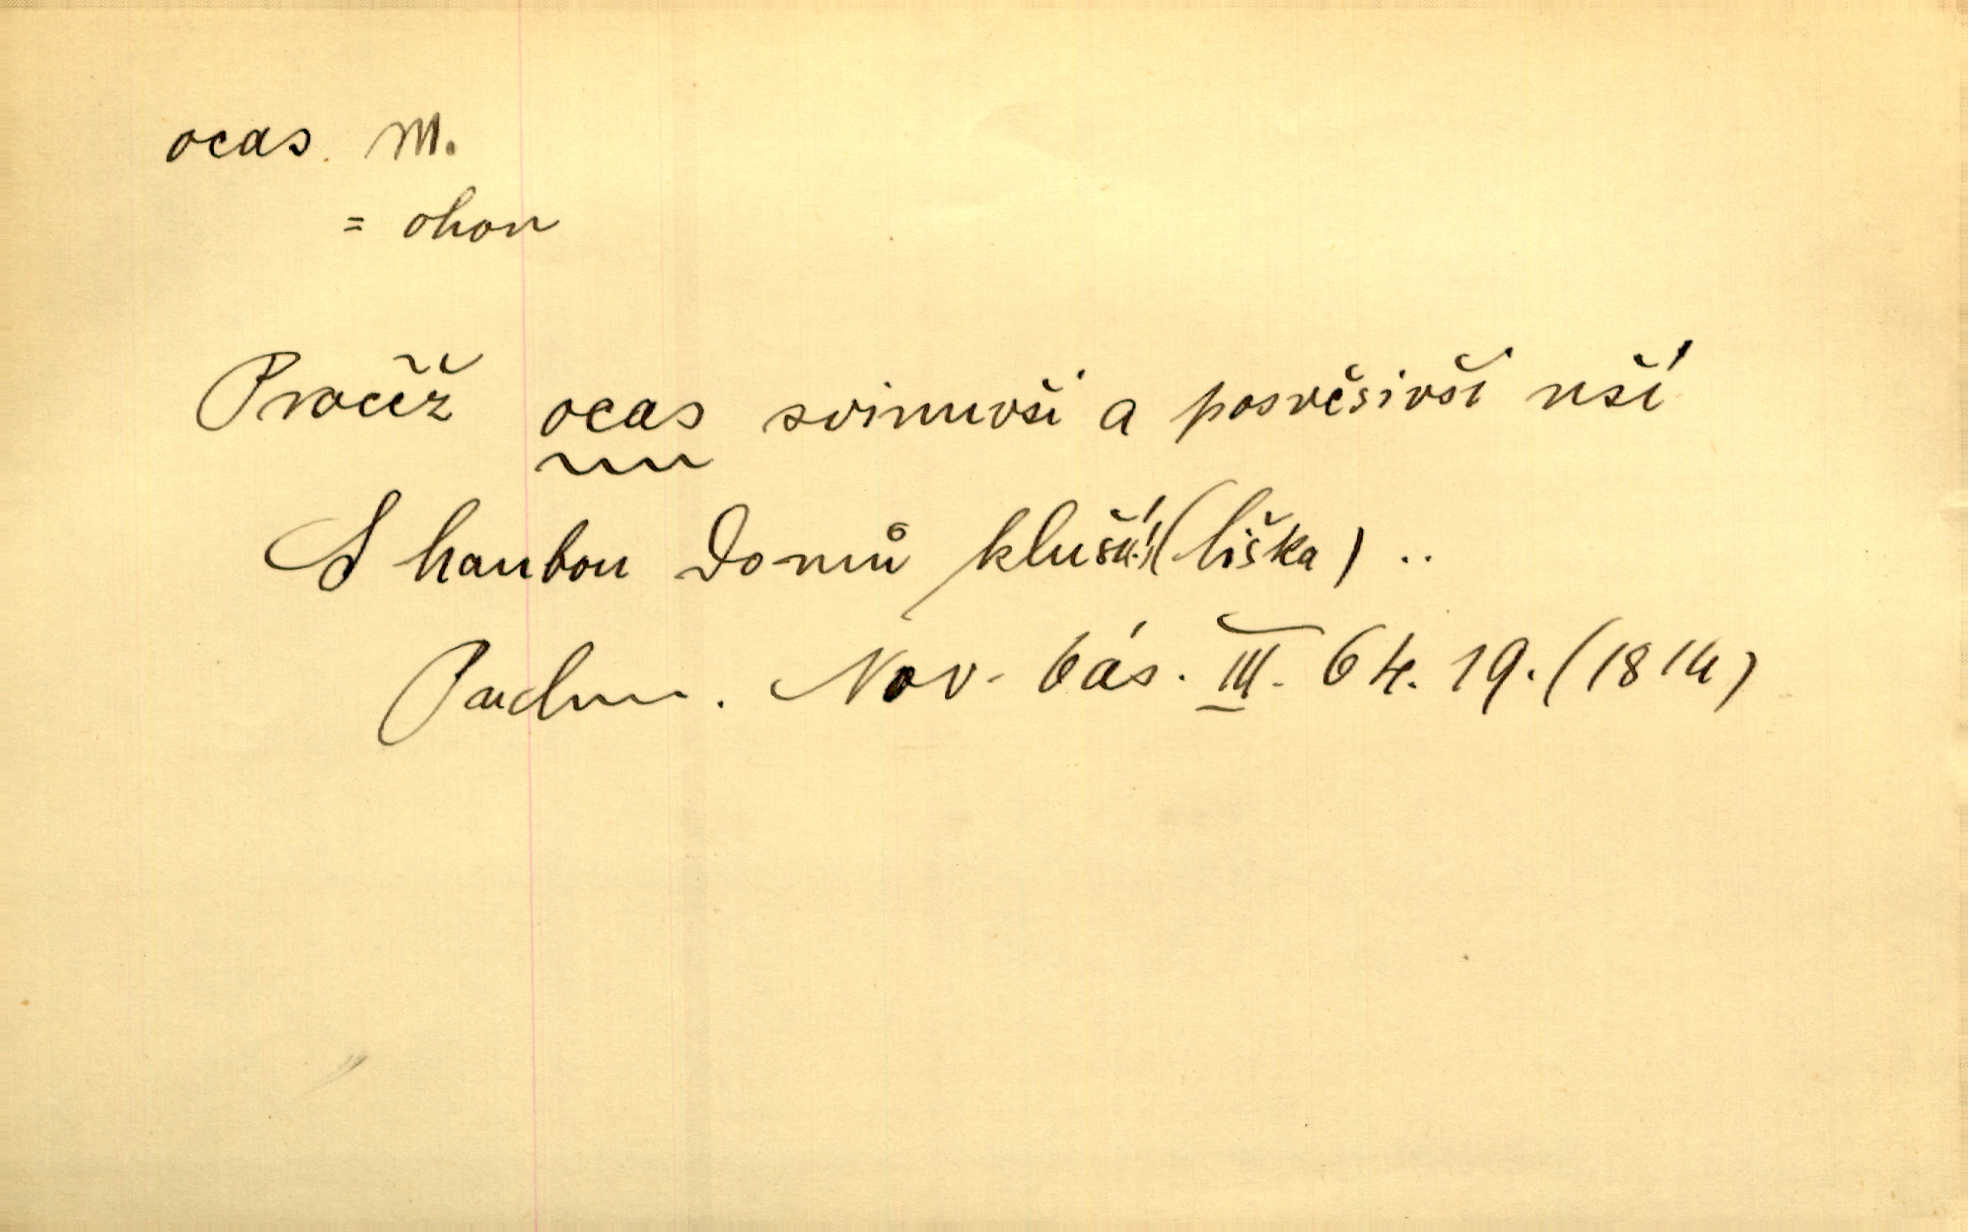 ocas. M.
= ohon
Pročež ocas svinuvši a posvěsivši uši
S hanbou domů kluší! (liška) ..
Nov. bás. III. 64. 19. (1814)